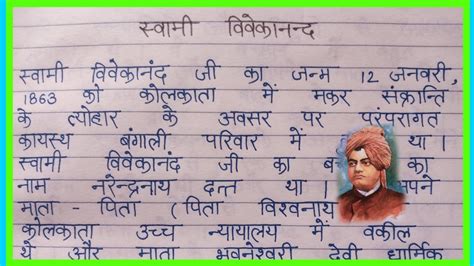 स्वामी विवेकानन्द
स्वामी विवेकानंद जी का जन्म 12 जनवरी,
1863 को कोलकाता में मकर संक्रान्ति
के त्योहार के अवसर पर परंपरागत
कायस्थ बंगाली परिवार में था।
स्वामी विवेकानंद जी का का
नाम नरेन्द्रनाथ दत्त था।
माता - पिता (पिता विश्वनाथ
कोलकाता उच्च न्यायालय में वकील
थे और माता भवनेश्वरी देवी धार्मिक